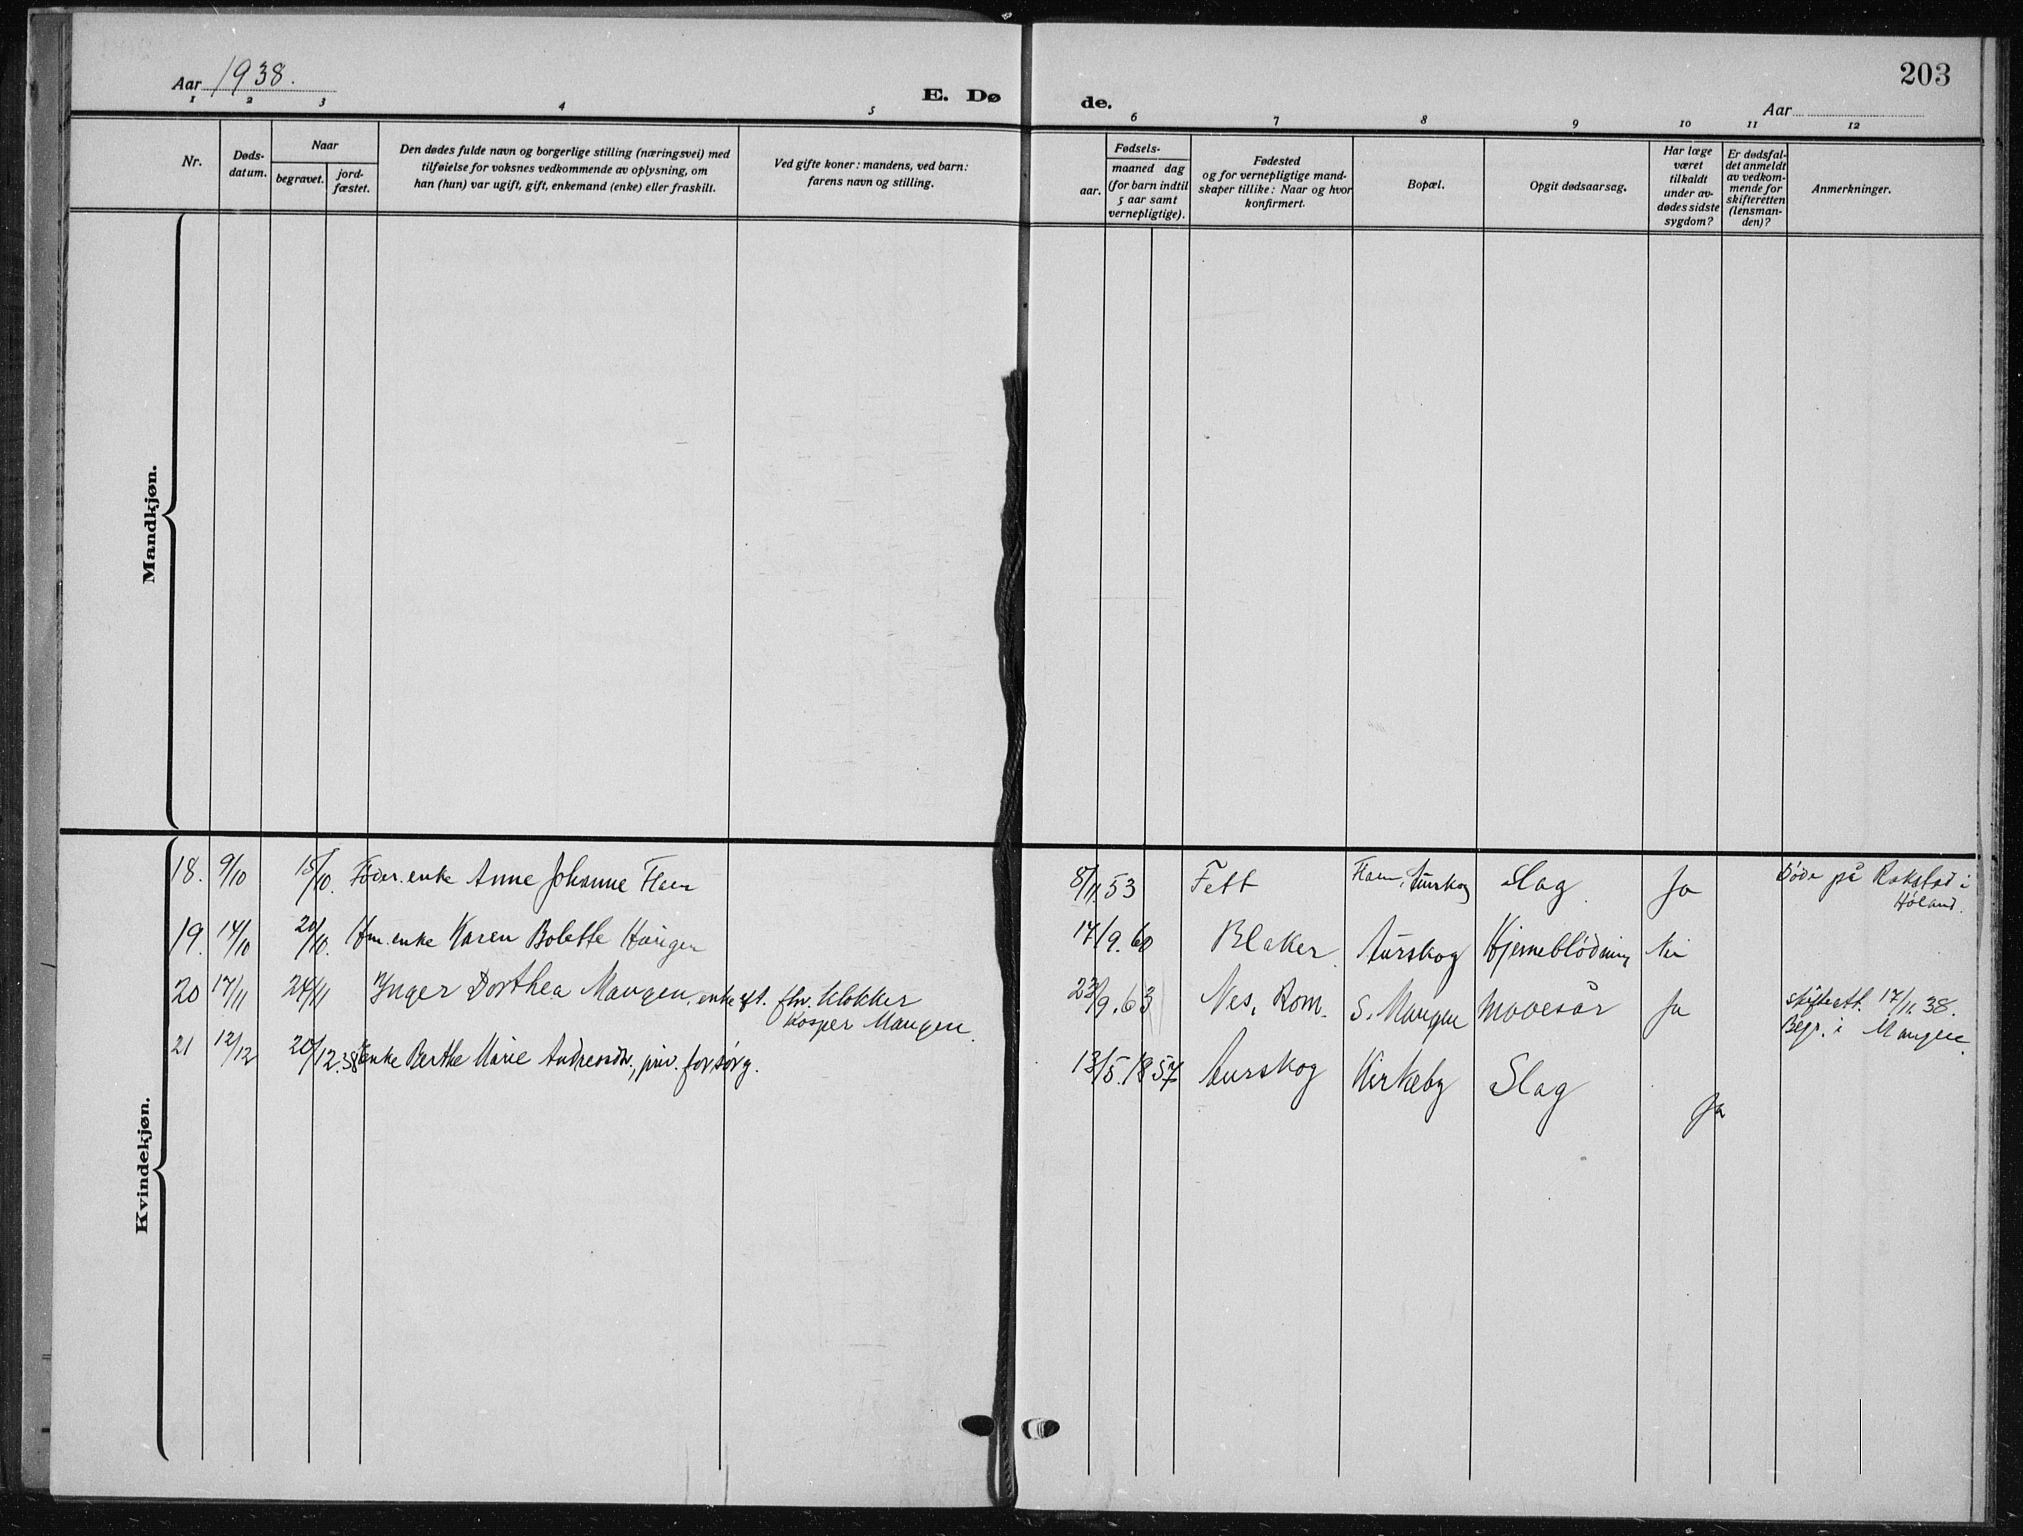 Aar 1938.
E. Dø
de.
Aar
203
1 2 3 4 5 6 7 8 9 10 11 12
Nr.
Døds-
datum.
Naar
begravet.
jord-
fæstet.
Den dødes fulde navn og borgerlige stilling (næringsvei) med
tilføielse for voksnes vedkommende av oplysning, om
han (hun) var ugift, gift, enkemand (enke) eller fraskilt.
Ved gifte koner: mandens, ved barn:
farens navn og stilling.
Fødsels-
aar.
maaned dag
(for barn indtil
5 aar samt
vernepligtige).
Fødested
og for vernepligtige mand-
skaper tillike: Naar og hvor
konfirmert.
Bopæl.
Opgit dødsaarsag.
Har læge
været
tilkaldt
under av-
dødes sidste
sygdom?
Er dødsfal-
det anmeldt
av vedkom-
mende for
skifteretten
(lensman-
den)?
Anmerkninger.
Mandkjøn.
Kvindekjøn.
18. 9/10 15/10. Föder.enke Anne Johanne 8/11.53 Fett Aurskog Slag Ja Döde på Rakstad i
Höland.
19. 14/10 20/10. enke Karen Bolette Haugen 17/9.60 Blaker Aurskog Hjerneblödning Nei
20 17/11 24/11 Ynger Dorthea Mangen, enke ef. fhv. klokker
Kasper Mangen. 23/9.63 Nes, Rom. S. Mangen Mavesår Ja skifterett. 17/11.38.
Begr. i Mangen.
21 12/12 20/12.38 enke Berthe Marie Andreasdtr., priv. forsörg. 13/5.1857 Aurskog Kirkeby Slag Ja